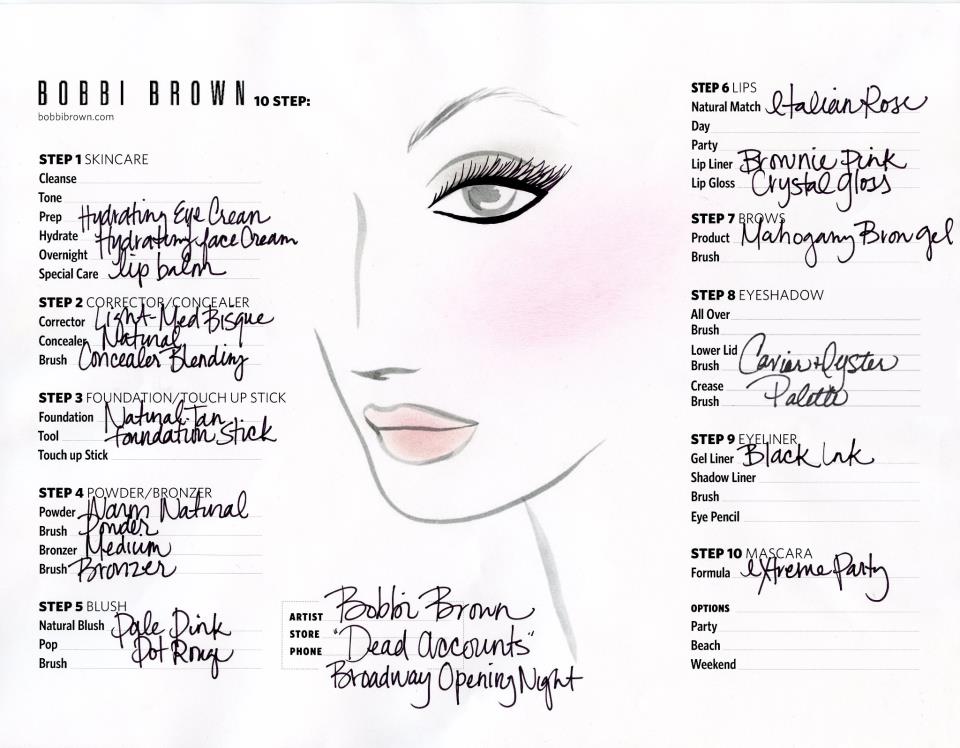 BOBBI BROWN 10 STEP:
bobbibrown.com
STEP 1 SKINCARE
Cleanse
Tone
Prep Hydrating Eye Cream
Hydrate Hydrating face Cream
Overnight
Special Care lip balm
STEP 2 CORRECTOR/CONCEALER
Corrector Light-Med Bisque
Concealer Natural
Brush Concealer Blending
STEP 3 FOUNDATION/TOUCH UP STICK
Foundation Natural Tan
Tool foundation Stick
Touch up Stick
STEP 4 POWDER/BRONZER
Powder Warm Natural
Brush Powder
Bronzer Medium
Brush Bronzer
STEP 5 BLUSH
Natural Blush Pale Pink
Pop Pot Rouge
Brush
ARTIST Bobbi Brown
STORE "Dead Accounts"
PHONE Broadway Opening Night
STEP 6 LIPS
Natural Match Italian Rose
Day
Party
Lip Liner Brownie Pink
Lip Gloss Crystal gloss
STEP 7 BROWS
Product Mahogany Brow gel
Brush
STEP 8 EYESHADOW
All Over
Brush
Lower Lid Caviar + Oyster
Brush
Crease Palette
Brush
STEP 9 EYELINER
Gel Liner Black Ink
Shadow Liner
Brush
Eye Pencil
STEP 10 MASCARA
Formula extreme Party
OPTIONS
Party
Beach
Weekend